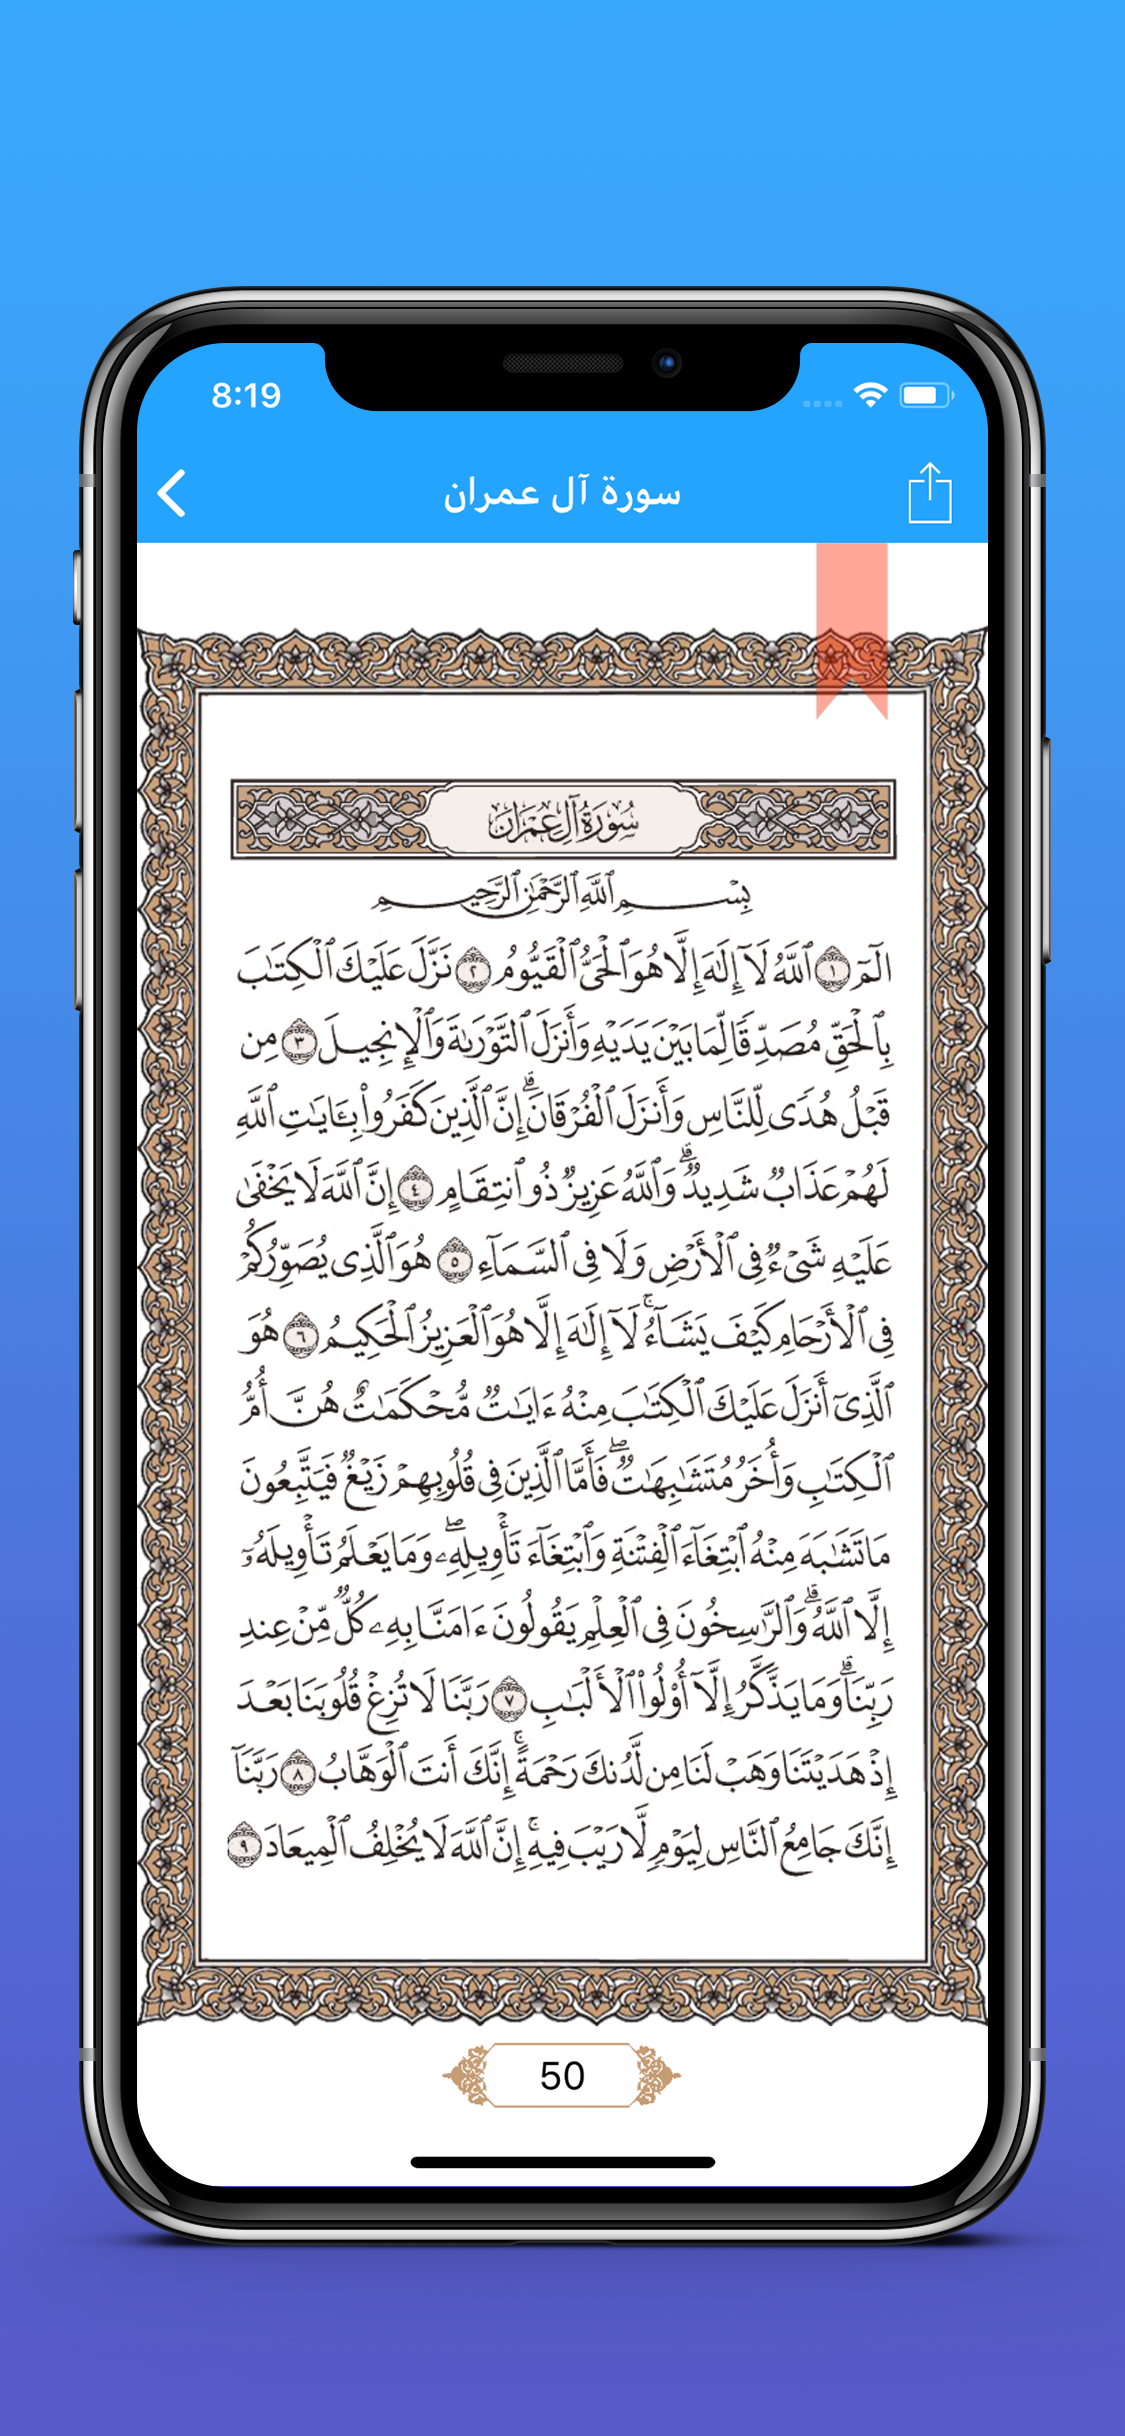 8:19
سورة آل عمران
سُورَةُ آلِ عِمْرَان
بِسْمِ ٱللَّهِ ٱلرَّحْمَٰنِ ٱلرَّحِيمِ
الٓمٓ ١ ٱللَّهُ لَآ إِلَٰهَ إِلَّا هُوَ ٱلْحَىُّ ٱلْقَيُّومُ ٢ نَزَّلَ عَلَيْكَ ٱلْكِتَٰبَ
بِٱلْحَقِّ مُصَدِّقًا لِّمَا بَيْنَ يَدَيْهِ وَأَنزَلَ ٱلتَّوْرَىٰةَ وَٱلْإِنجِيلَ ٣ مِن
قَبْلُ هُدًى لِّلنَّاسِ وَأَنزَلَ ٱلْفُرْقَانَ ۗ إِنَّ ٱلَّذِينَ كَفَرُوا۟ بِـَٔايَٰتِ ٱللَّهِ
لَهُمْ عَذَابٌ شَدِيدٌ ۗ وَٱللَّهُ عَزِيزٌ ذُو ٱنتِقَامٍ ٤ إِنَّ ٱللَّهَ لَا يَخْفَىٰ
عَلَيْهِ شَىْءٌ فِى ٱلْأَرْضِ وَلَا فِى ٱلسَّمَآءِ ٥ هُوَ ٱلَّذِى يُصَوِّرُكُمْ
فِى ٱلْأَرْحَامِ كَيْفَ يَشَآءُ ۚ لَآ إِلَٰهَ إِلَّا هُوَ ٱلْعَزِيزُ ٱلْحَكِيمُ ٦ هُوَ
ٱلَّذِىٓ أَنزَلَ عَلَيْكَ ٱلْكِتَٰبَ مِنْهُ ءَايَٰتٌ مُّحْكَمَٰتٌ هُنَّ أُمُّ
ٱلْكِتَٰبِ وَأُخَرُ مُتَشَٰبِهَٰتٌ ۖ فَأَمَّا ٱلَّذِينَ فِى قُلُوبِهِمْ زَيْغٌ فَيَتَّبِعُونَ
مَا تَشَٰبَهَ مِنْهُ ٱبْتِغَآءَ ٱلْفِتْنَةِ وَٱبْتِغَآءَ تَأْوِيلِهِۦ ۖ وَمَا يَعْلَمُ تَأْوِيلَهُۥٓ
إِلَّا ٱللَّهُ ۗ وَٱلرَّٰسِخُونَ فِى ٱلْعِلْمِ يَقُولُونَ ءَامَنَّا بِهِۦ كُلٌّ مِّنْ عِندِ
رَبِّنَا ۗ وَمَا يَذَّكَّرُ إِلَّآ أُو۟لُوا۟ ٱلْأَلْبَٰبِ ٧ رَبَّنَا لَا تُزِغْ قُلُوبَنَا بَعْدَ
إِذْ هَدَيْتَنَا وَهَبْ لَنَا مِن لَّدُنكَ رَحْمَةً ۚ إِنَّكَ أَنتَ ٱلْوَهَّابُ ٨ رَبَّنَآ
إِنَّكَ جَامِعُ ٱلنَّاسِ لِيَوْمٍ لَّا رَيْبَ فِيهِ ۚ إِنَّ ٱللَّهَ لَا يُخْلِفُ ٱلْمِيعَادَ ٩
50